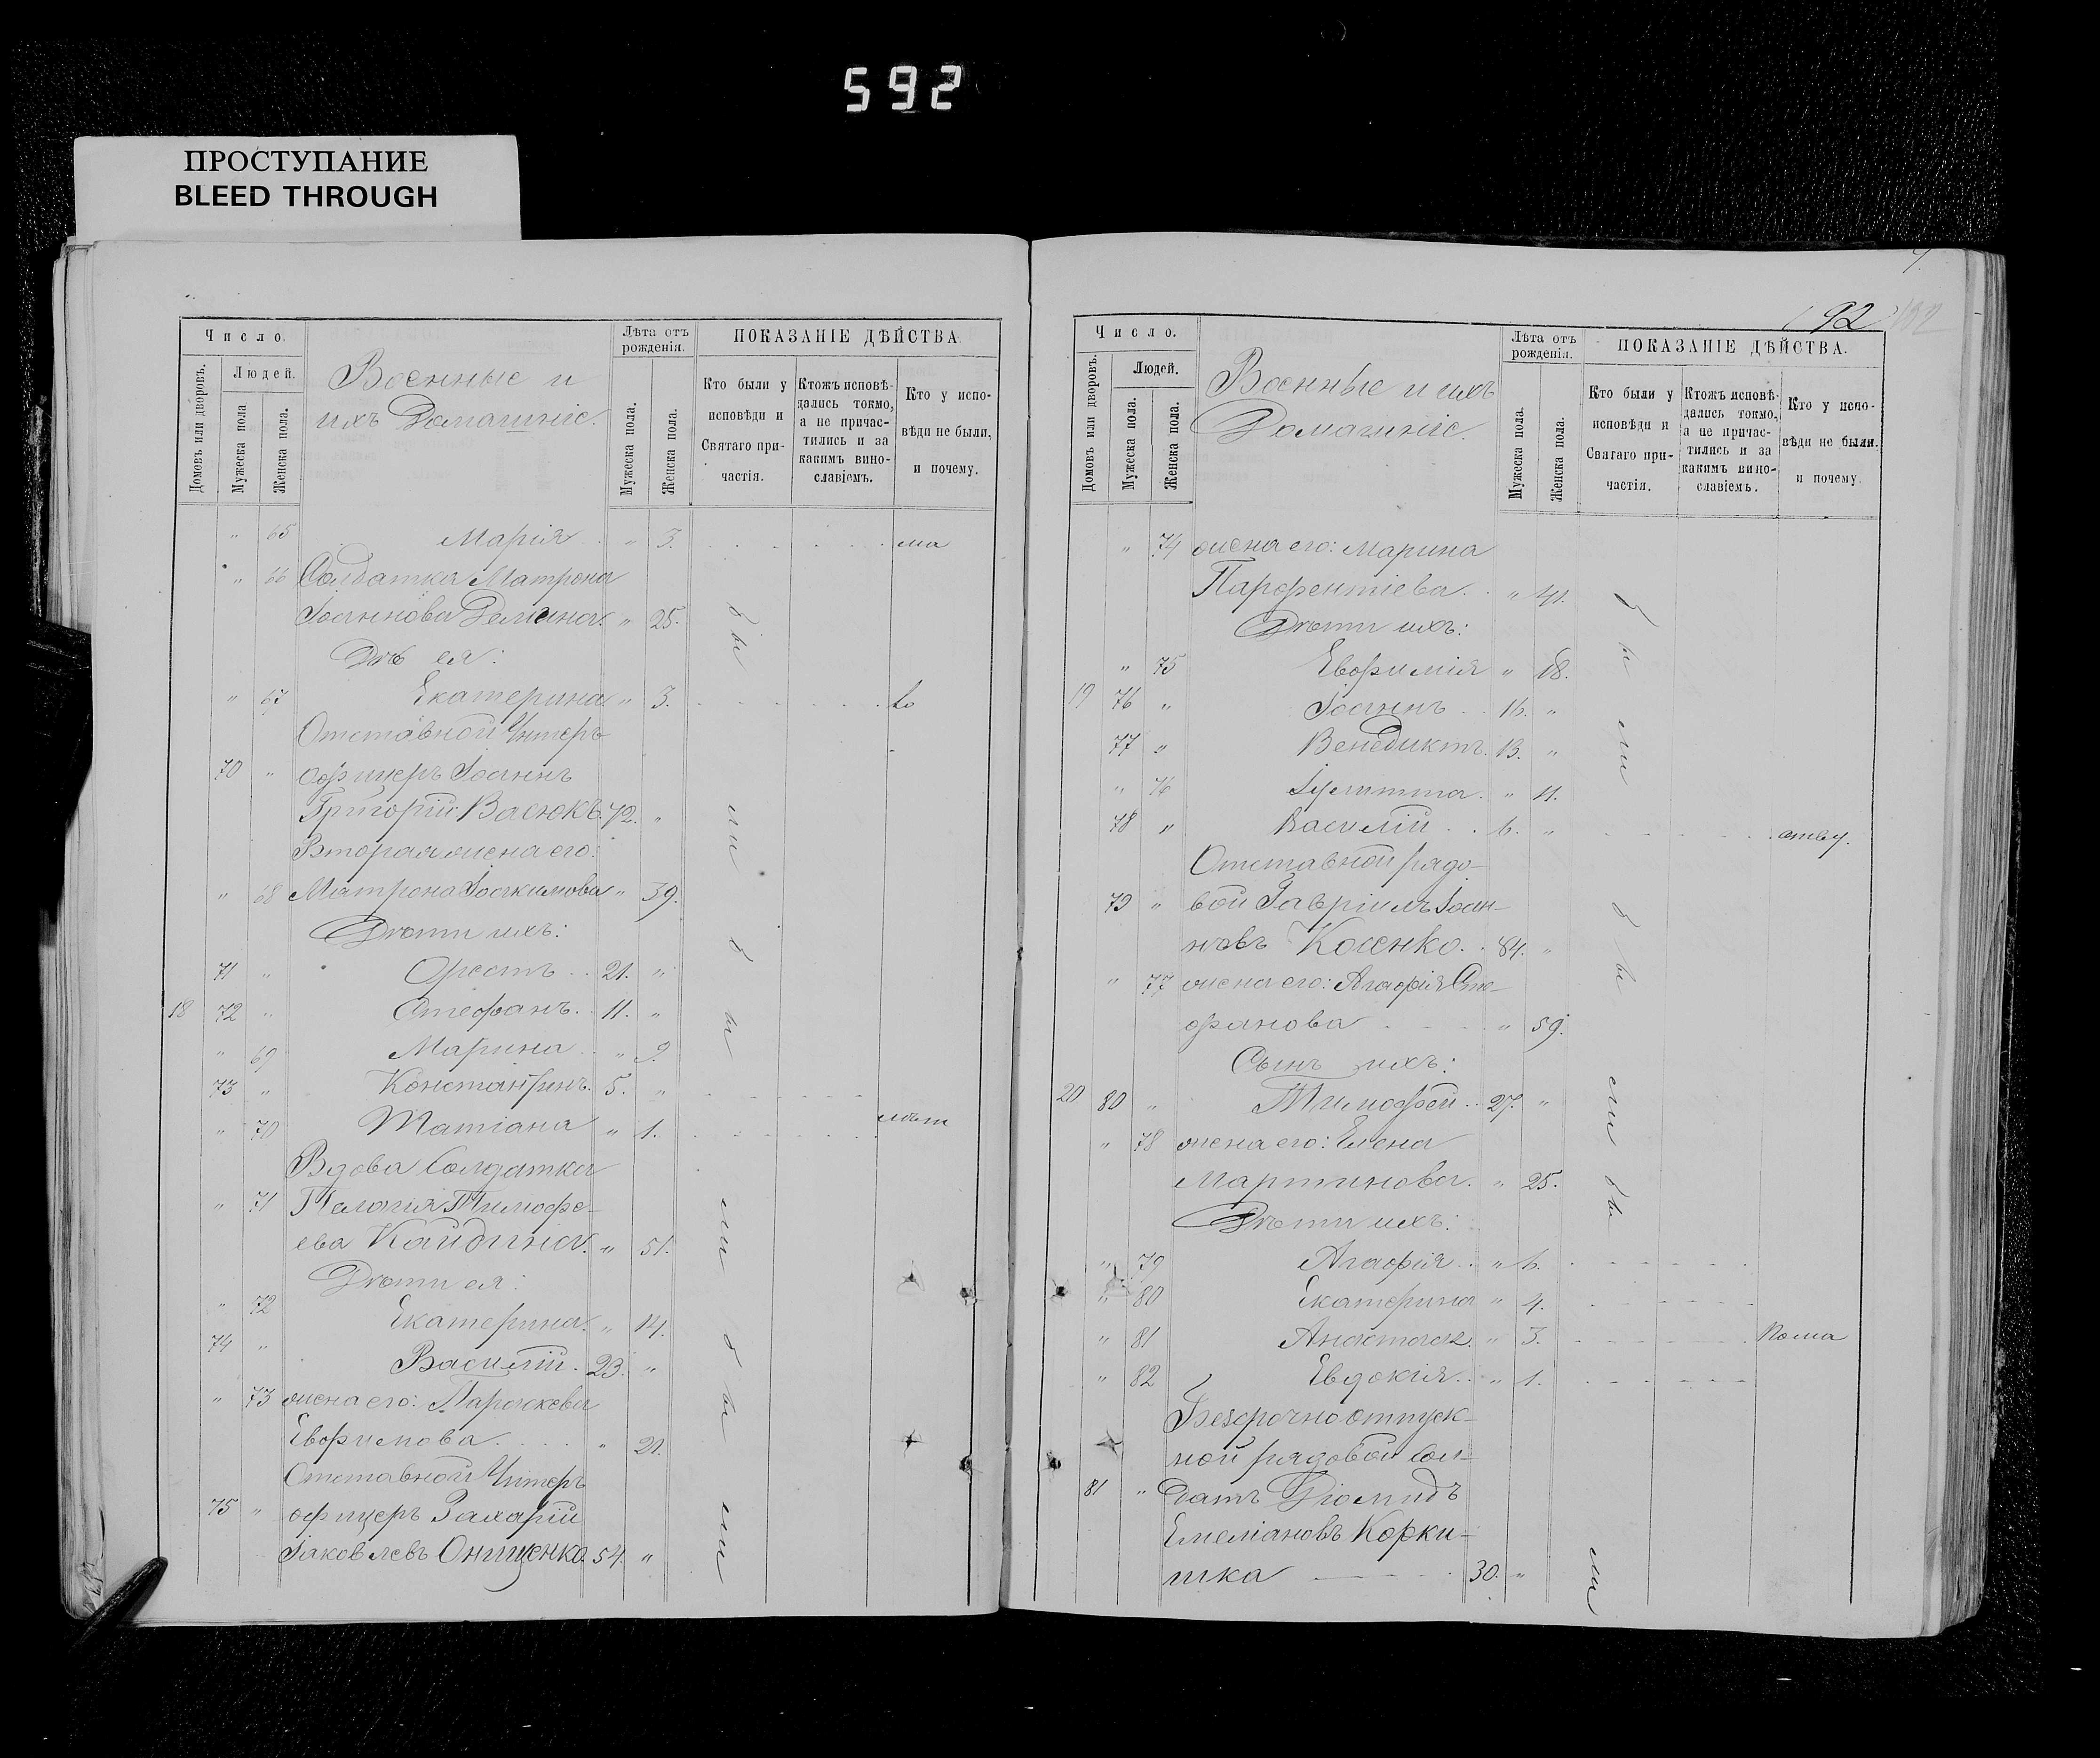 592
ПРОСТУПАНИЕ
BLEED THROUGH
Число.
Людей.
Домовъ или дворовъ.
Мужеска пола
Женска пола.
Военные и
ихъ Домашніе.
Лѣта отъ рожденія.
Мужеска пола.
Женска пола.
ПОКАЗАНІЕ ДѢЙСТВА.
Кто были у исповѣди и Святаго причастія.
Ктожъ исповѣдались токмо, а не причастились и за какимъ винословіемъ.
Кто у исповѣди не были, и почему.
" 65 Марія " 3. ма
" 66 Солдатка Матрона
Іоаннова Демина. " 25.
Дчь ея:
" 67 Екатерина " 3. ло
Отставной Унтеръ
70 " офицеръ Іоаннъ
Григорій Васюкъ. 72. "
Вторая жена его:
" 68 Матрона Іоакимова " 39.
Дѣти ихъ:
71 " Орестъ 21. "
18 72 " Стефанъ. 11. "
" 69 Марина " 9.
73 " Константинъ. 5. "
" 70 Татіана " 1. лѣт
Вдова Солдатка
" 71 Пелагія Тимофе-
ева Кайдина. " 51.
Дѣти ея:
" 72 Екатерина. " 14.
74 " Василій. 23. "
" 73 жена его: Параскева
Евфимова. " 21.
Отставной Унтеръ
75 " офицеръ Захарій
Іаковлевъ Онищенко 54. "
были были были
192
Число.
Людей.
Домовъ или дворовъ.
Мужеска пола.
Женска пола.
Военные и ихъ
Домашніе.
Лѣта отъ рожденія.
Мужеска пола.
Женска пола.
ПОКАЗАНІЕ ДѢЙСТВА.
Кто были у исповѣди и Святаго причастія.
Ктожъ исповѣдались токмо, а не причастились и за какимъ винословіемъ.
Кто у исповѣди не были. и почему.
" 74 жена его: Марина
Парфентіева. " 41.
Дѣти ихъ:
" 75 Евфимія " 18.
19 76 " Іоаннъ 16. "
77 " Венедиктъ. 13. "
" 76 Іулитта. " 11.
78 " Василій 6. "
Отставной рядо-
79 " вой Гавріилъ Іоан-
новъ Косенко. 84. "
" 77 жена его: Агафія Сте-
фанова " 59.
Сынъ ихъ:
20 80 " Тимофей 27. "
" 78 жена его: Елена
Мартинова. " 25.
Дѣти ихъ:
" 79 Агафія. " 6.
" 80 Екатерина " 4.
" 81 Анастасія. " 3.
" 82 Евдокія. " 1.
Безсрочно отпуск-
ной рядовой Сол-
81 " датъ Діомидъ
Емеліановъ Корки-
шка 30. "
были были